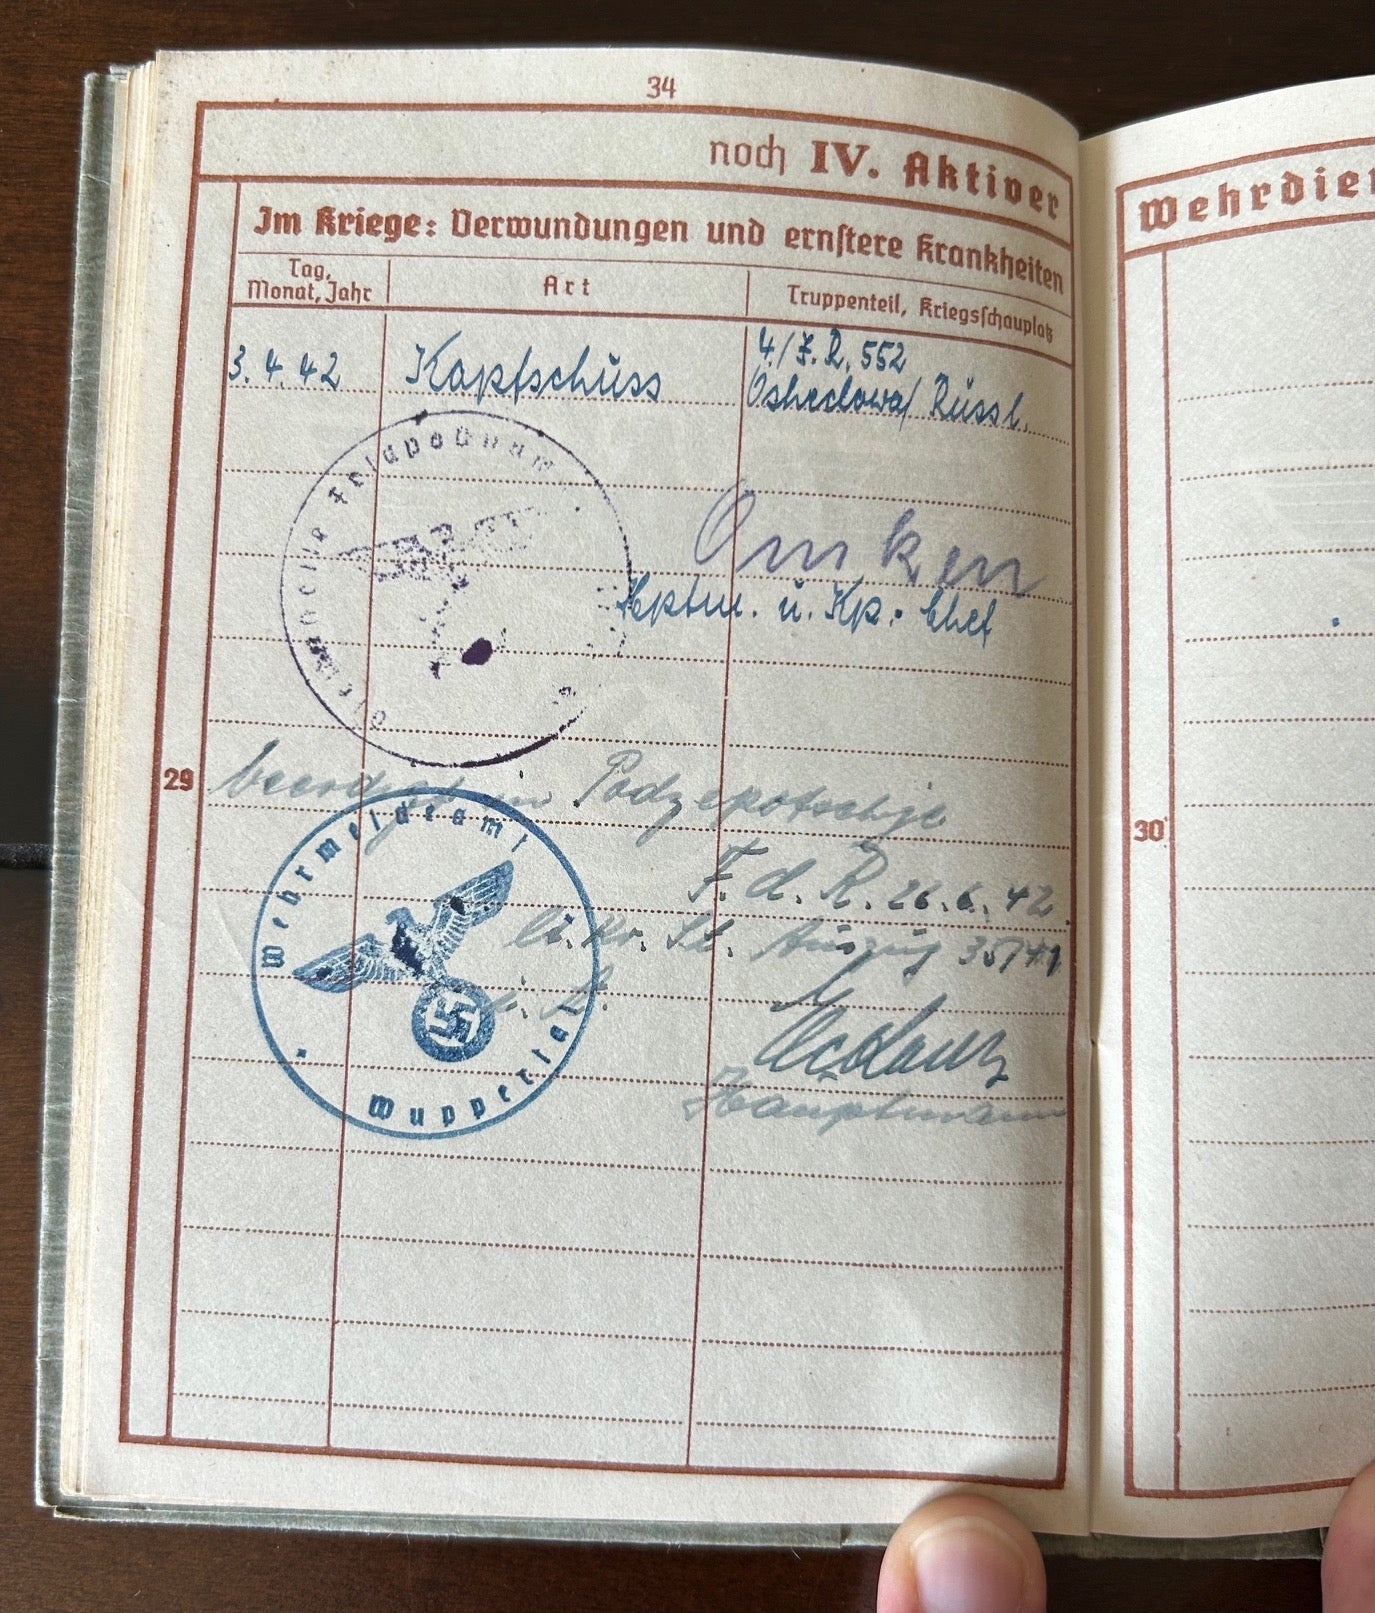 34
noch IV. Aktiver
Wehrdien
Im Kriege: Verwundungen und ernstere Krankheiten
Tag, Monat, Jahr
Art
Truppenteil, Kriegsschauplatz
3.4.42
Kopfschuss
4./I.R. 552
Russl.
Omken
Hptm. u. Kp. Chef
29
beerdigt in Podzepotschje
F. d. R. 26.6.42
lt. Kr. St. Auszug 35/41
Hauptmann
Wehrmeldeamt
Wuppertal
30